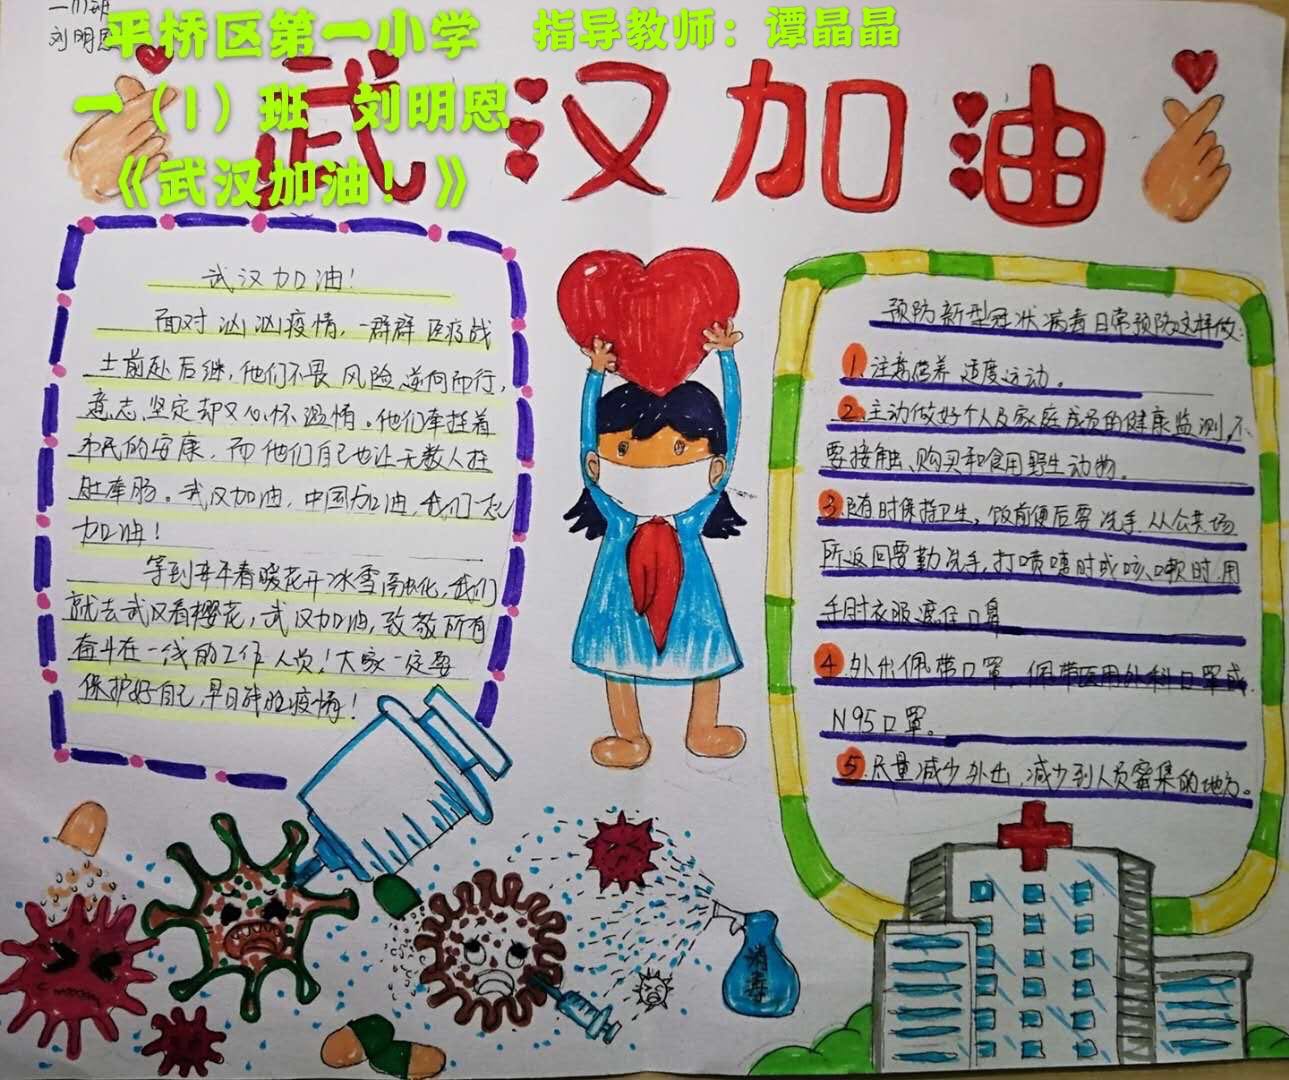 一(1)班
刘明恩
平桥区第一小学 指导教师：谭晶晶
一（1）班 刘明恩
《武汉加油！》
武汉加油
武汉加油!
面对汹汹疫情,一群群医疗战
士前赴后继,他们不畏风险,逆向而行,
意志坚定却又心怀温情。他们牵挂着
市民的安康,而他们自己也让无数人挂
肚牵肠。武汉加油,中国加油,我们一起
加油!
等到来年春暖花开冰雪融化,我们
就去武汉看樱花,武汉加油,致敬所有
奋斗在一线的工作人员!大家一定要
保护好自己,早日战胜疫情!
预防新型冠状病毒日常预防这样做:
1.注意营养 适度运动。
2.主动做好个人及家庭成员的健康监测,不
要接触、购买和食用野生动物。
3.随时保持卫生,饭前便后要洗手.从公共场
所返回要勤洗手,打喷嚏时或咳嗽时用
手肘衣服遮住口鼻
4.外出佩带口罩,佩带医用外科口罩或
N95口罩。
5.尽量减少外出,减少到人员密集的地方。
消毒